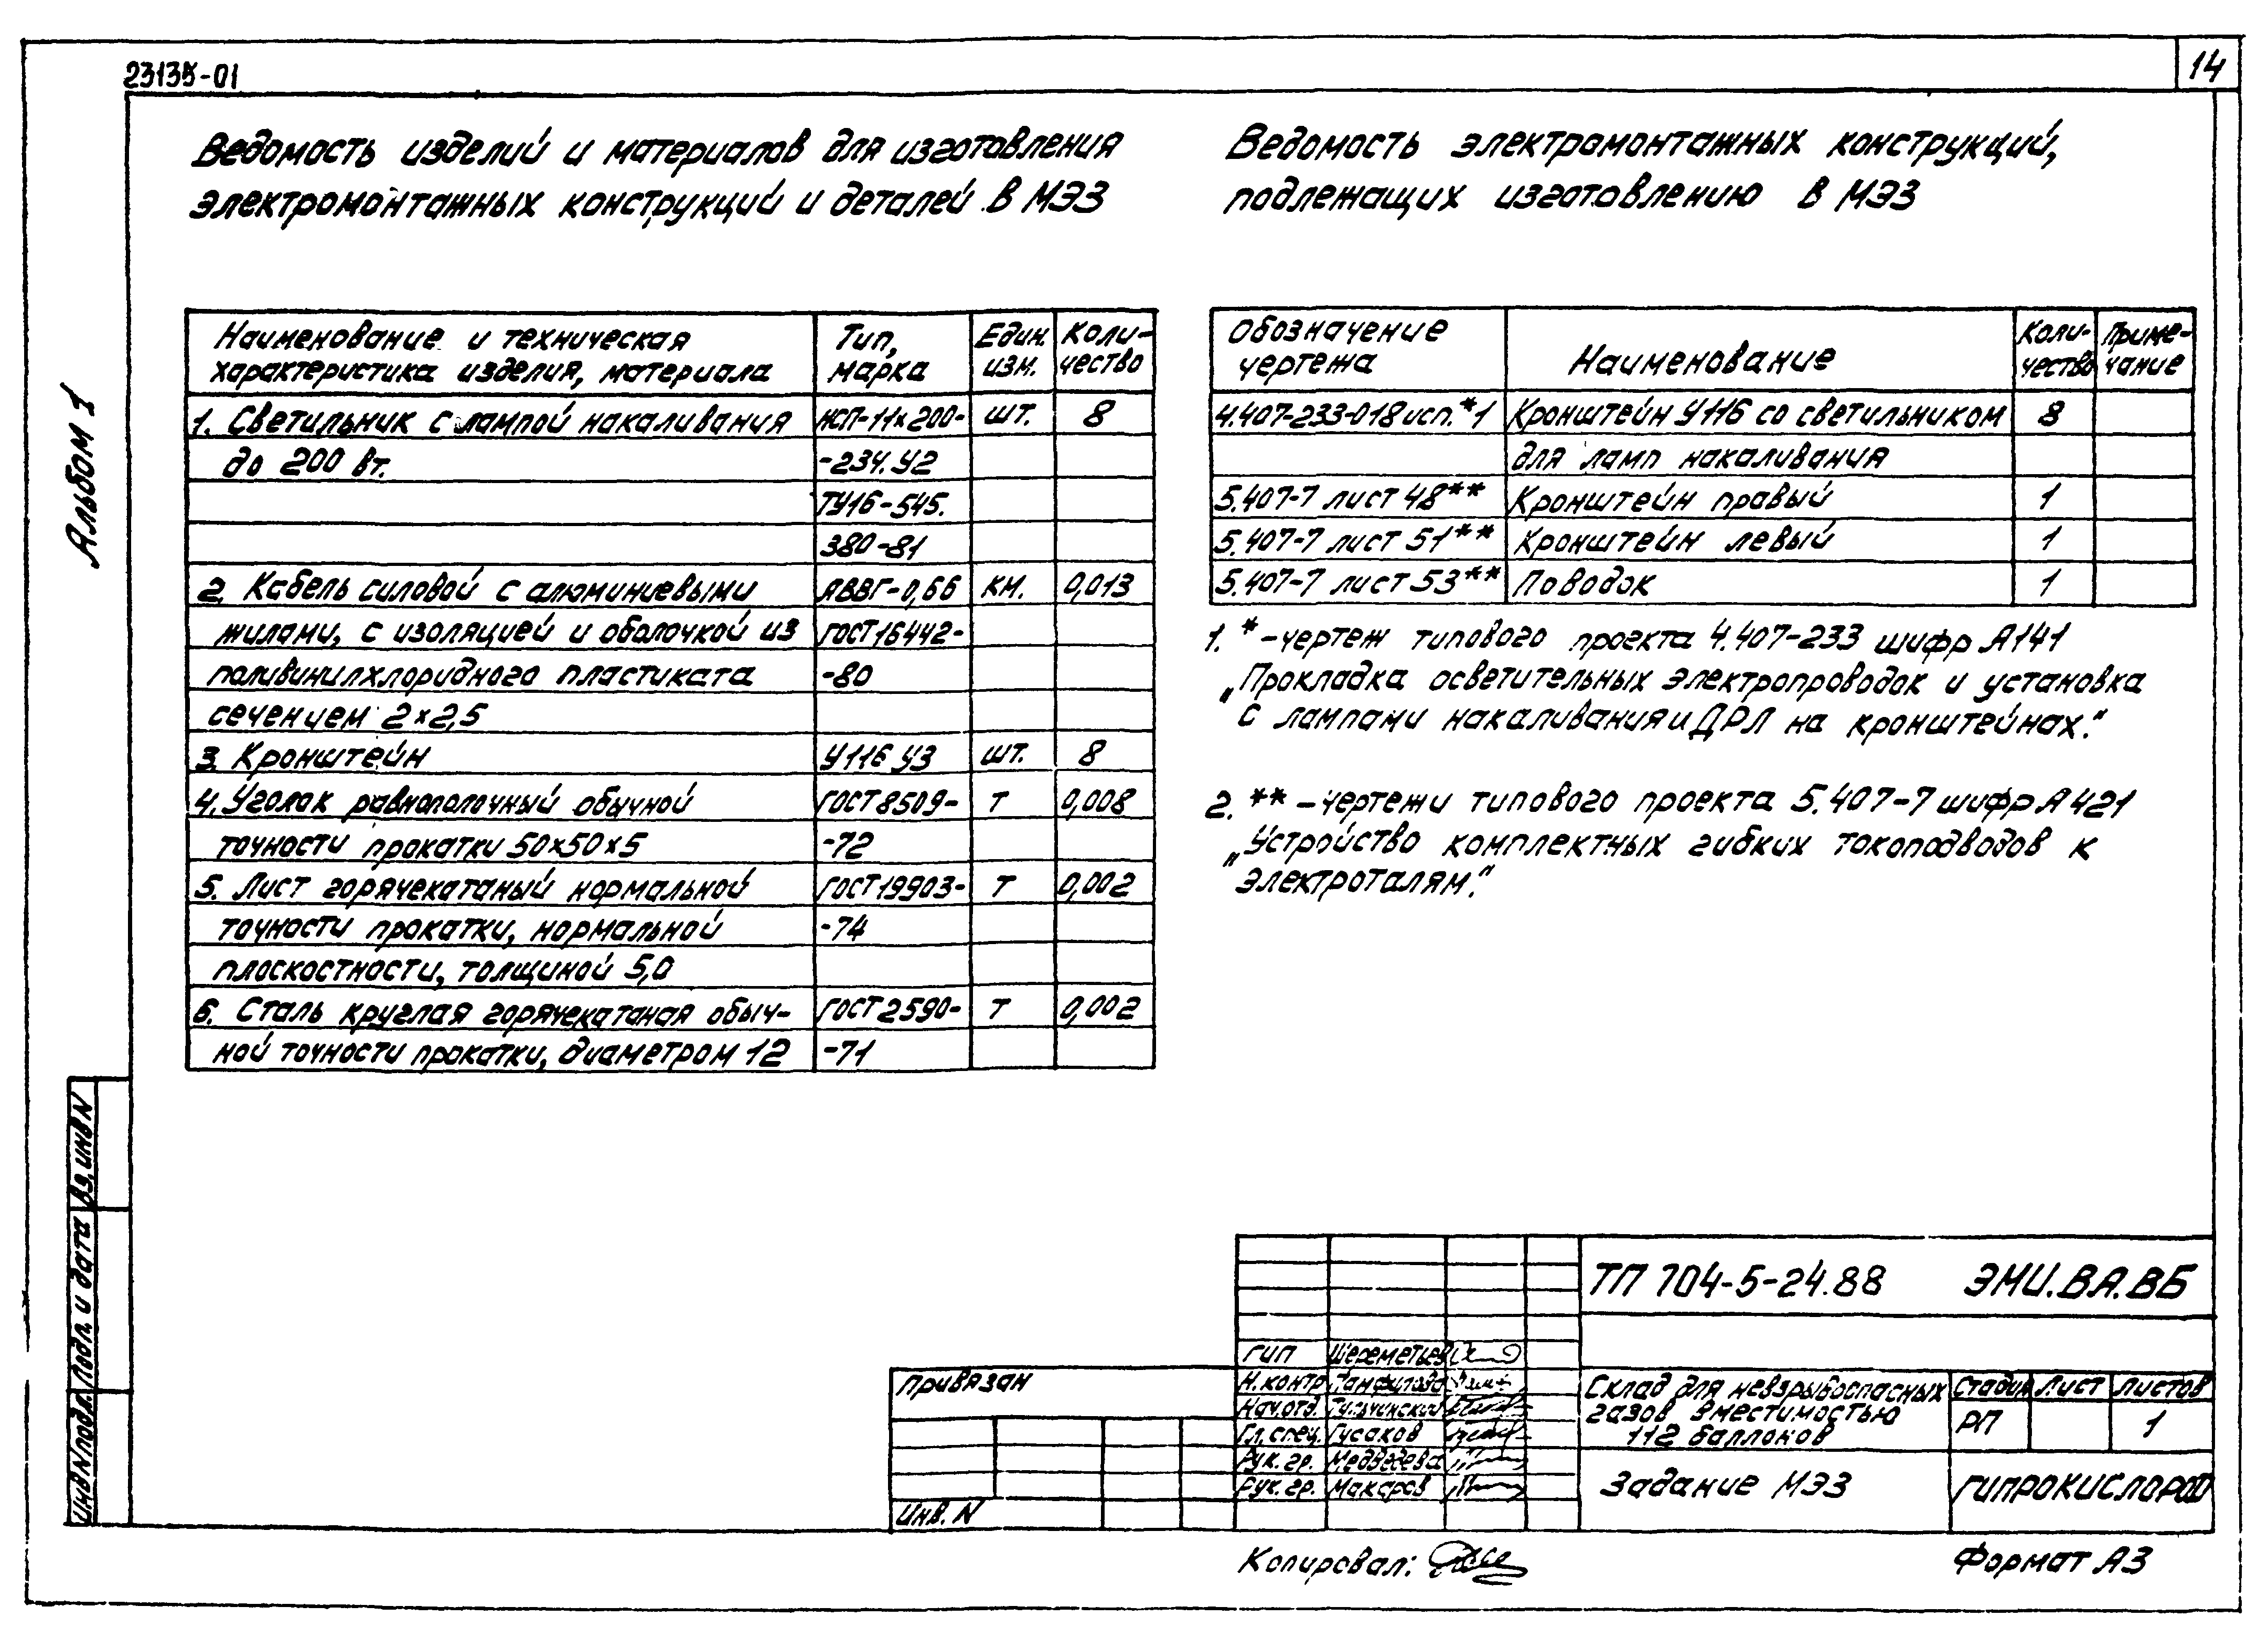 23135-01
14
Альбом 1
Ведомость изделий и материалов для изготовления
электромонтажных конструкций и деталей в МЭЗ
Наименование и техническая характеристика изделия, материала Тип, марка Един. изм. Коли-чество
1. Светильник с лампой накаливания НСП-11х200- шт. 8
до 200 вт. -234.У2
ТУ16-545.
380-81
2. Кабель силовой с алюминиевыми АВВГ-0,66 км. 0,013
жилами, с изоляцией и оболочкой из ГОСТ16442-
поливинилхлоридного пластиката -80
сечением 2х2,5
3. Кронштейн У116 У3 шт. 8
4. Уголок равнополочный обычной ГОСТ8509- т 0,008
точности прокатки 50х50х5 -72
5. Лист горячекатаный нормальной ГОСТ19903- т 0,002
точности прокатки, нормальной -74
плоскостности, толщиной 5,0
6. Сталь круглая горячекатаная обыч- ГОСТ2590- т 0,002
ной точности прокатки, диаметром 12 -71
Ведомость электромонтажных конструкций,
подлежащих изготовлению в МЭЗ
Обозначение чертежа Наименование Коли-чество Приме-чание
4.407-233-018 исп.*1 Кронштейн У116 со светильником 8
для ламп накаливания
5.407-7 лист 48** Кронштейн правый 1
5.407-7 лист 51** Кронштейн левый 1
5.407-7 лист 53** Поводок 1
1. * -чертеж типового проекта 4.407-233 шифр А141
„Прокладка осветительных электропроводок и установка
с лампами накаливания и ДРЛ на кронштейнах."
2. ** -чертежи типового проекта 5.407-7 шифр А421
„Устройство комплектных гибких токоподводов к
электроталям."
Вз. инв N
Подп. и дата
Инв N подл.
ТП 704-5-24.88 ЭМИ.ВА.ВБ
Привязан
Инв. N
ГИП Шереметьев
Н. контр. Панфилова
Нач. отд. Тульчинский
Гл. спец. Гусаков
Рук. гр. Медведева
Рук. гр. Макаров
Склад для невзрывоопасных
газов вместимостью
112 баллонов
Стадия Лист Листов
РП 1
Задание МЭЗ
ГИПРОКИСЛОРОД
Копировал:
Формат А3